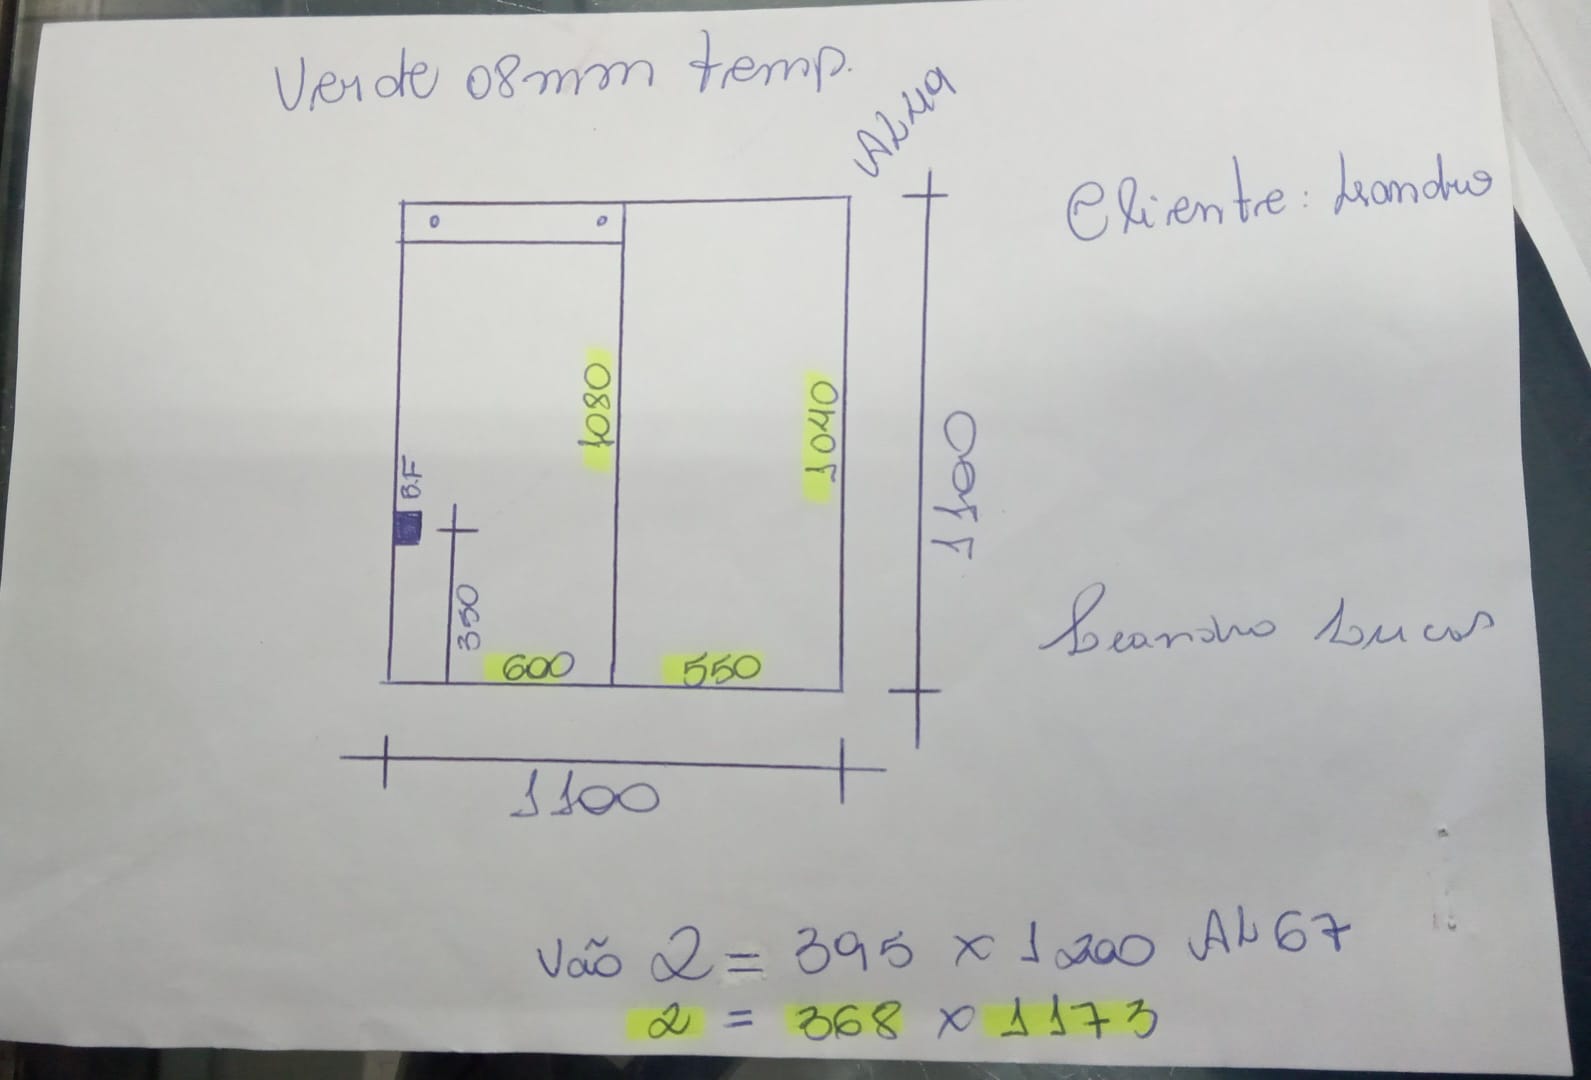 Verde 08mm temp.
AL49
Cliente: Leandro
1080
1040
1100
B.F
350
600
550
Leandro Lucas
1100
Vão 2 = 395 x 1200 AL 67
2 = 368 x 1173